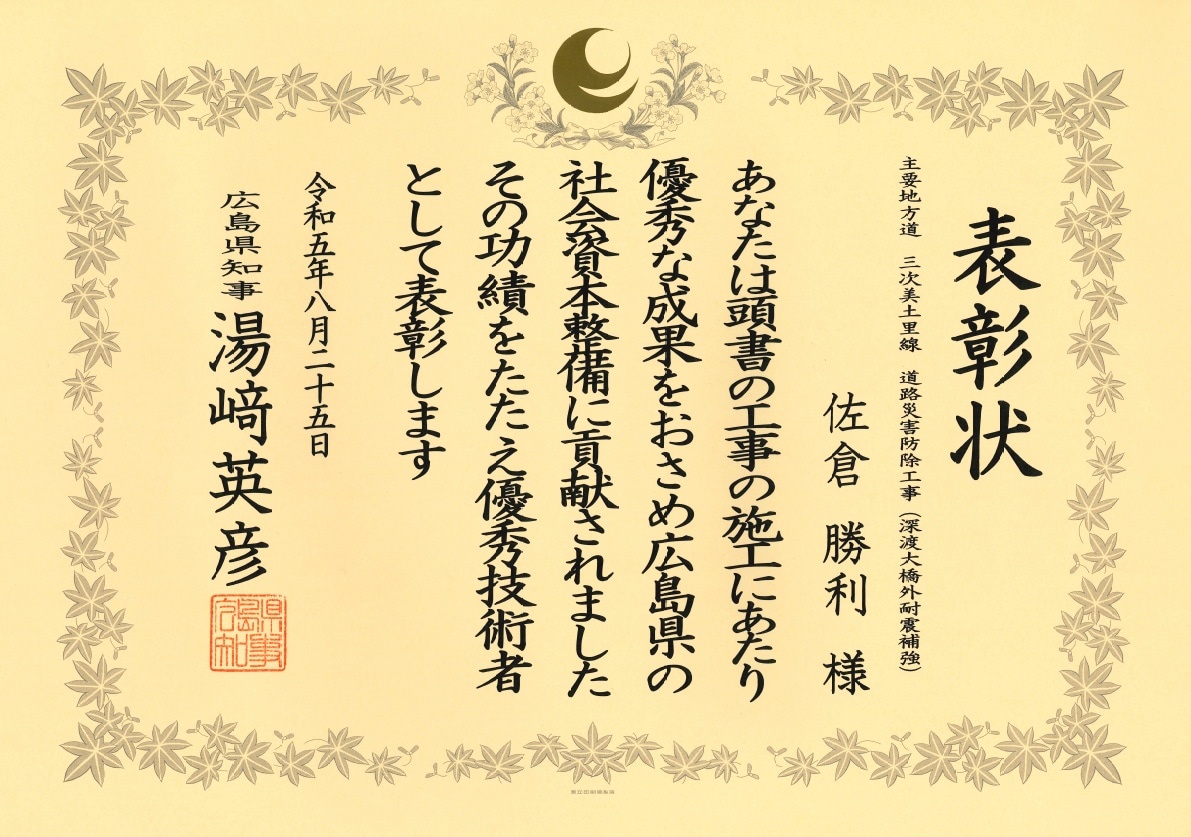 表彰状
主要地方道　三次美土里線　道路災害防除工事（深渡大橋外耐震補強）
佐倉　勝利　様
あなたは頭書の工事の施工にあたり
優秀な成果をおさめ広島県の
社会資本整備に貢献されました
その功績をたたえ優秀技術者
として表彰します
令和五年八月二十五日
広島県知事　湯﨑英彦